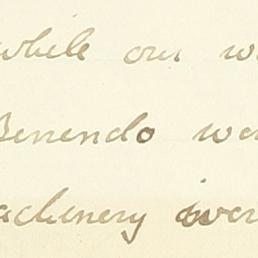 while our w
Benendo wer
achinery wer